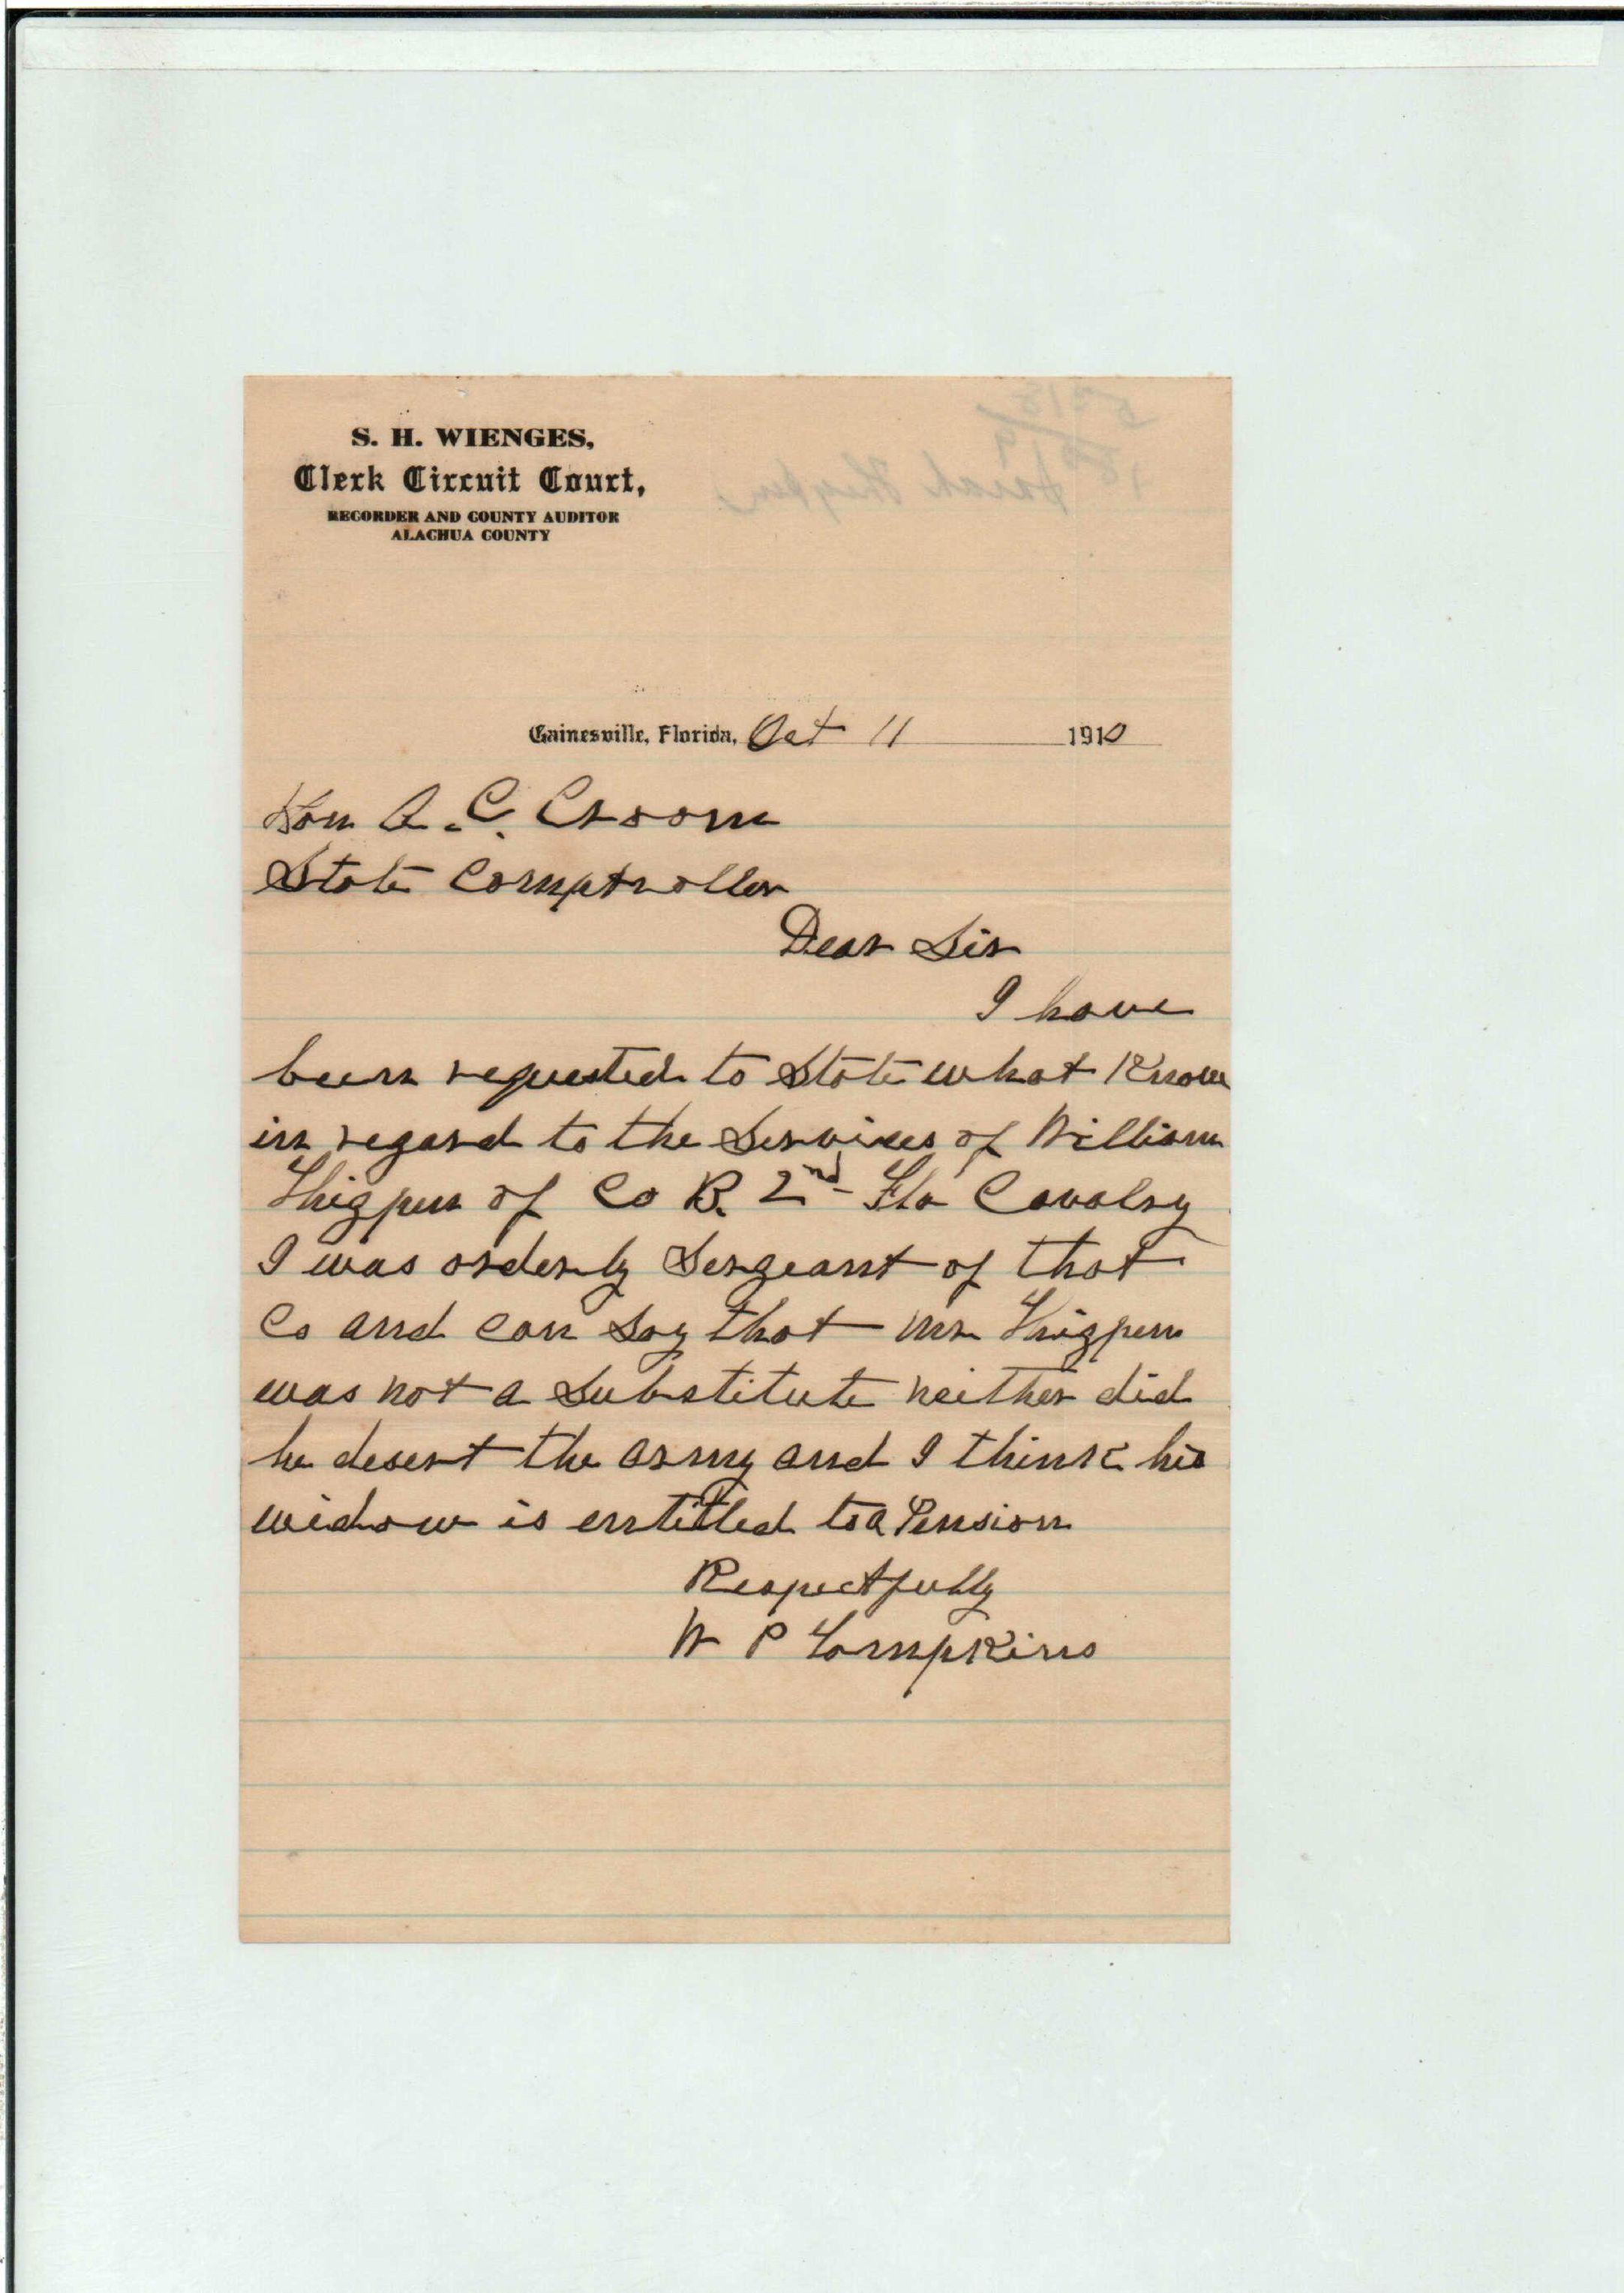 S. H. WIENGES,
Clerk Circuit Court,
RECORDER AND COUNTY AUDITOR
ALACHUA COUNTY
Gainesville, Florida, Oct 11 1910
Hon A. C. Croom
State Comptroller
Dear Sir
I have
been requested to State what I Know
in regard to the Services of William
Thigpen of Co B. 2nd Fla Cavalry
I was orderly Sergeant of that
Co and can Say that Mr Thigpen
was not a Substitute neither did
he desert the army and I think his
widow is entitled to a Pension
Respectfully
W P Tompkins